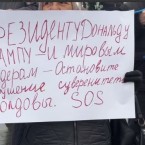 РЕЗИДЕНТУ Дональду
АМПУ - И мировым
дерам - Остановите
ушение суверенитет
олдовы. SOS